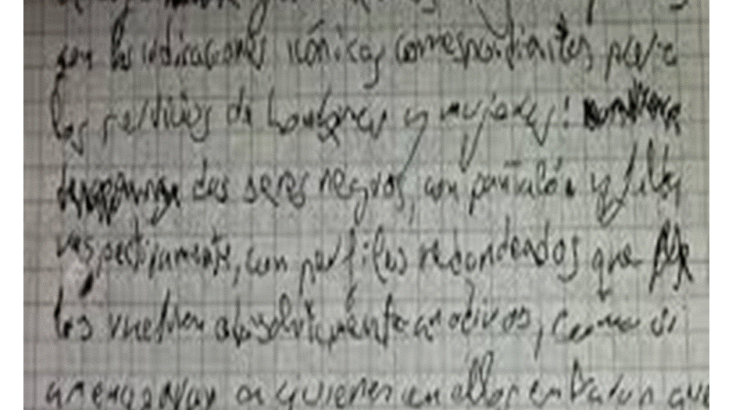 con las indicaciones icónicas correspondientes para
los servicios de hombres y mujeres:
dos seres negros, con pantalón y falda
respectivamente, con perfiles redondeados que
los vuelven absolutamente anodinos, como si
a quienes en ellos entraran que